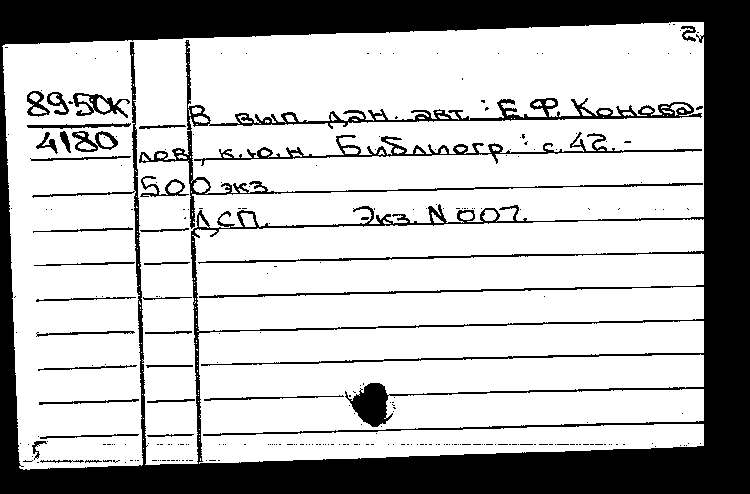 2.
89-50К
4180
В вып. дан. авт.: Е.Ф. Конова-
лов, к.ю.н. Библиогр.: с. 42.-
500 экз.
ДСП. Экз. N 007.